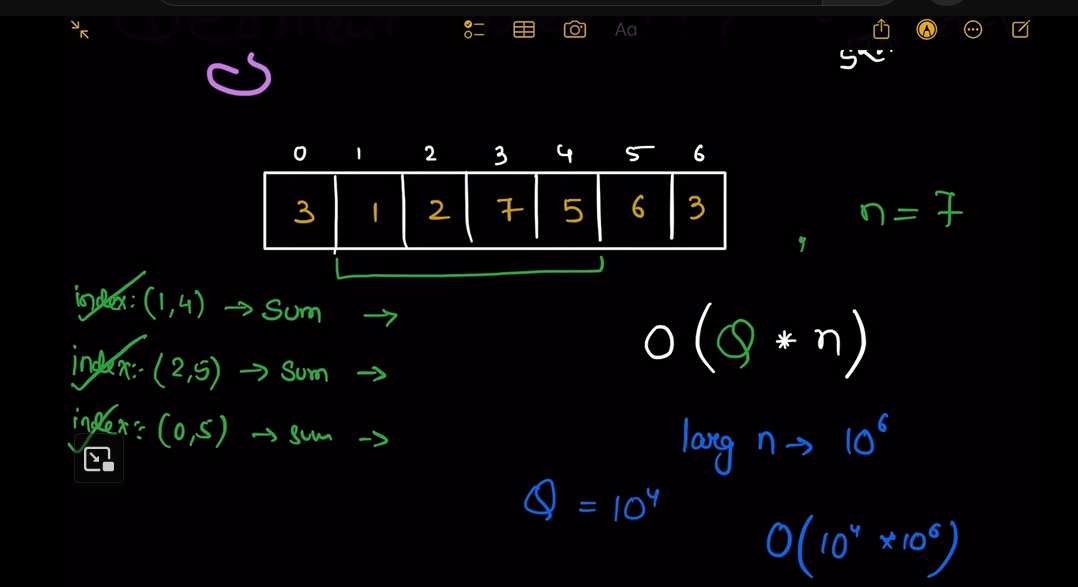 Aa
0 1 2 3 4 5 6
3 1 2 7 5 6 3
, n = 7
index: (1,4) → Sum →
O(Q * n)
index:- (2,5) → Sum →
index:- (0,5) → Sum →
larg n → 10⁶
Q = 10⁴
O(10⁴ * 10⁶)